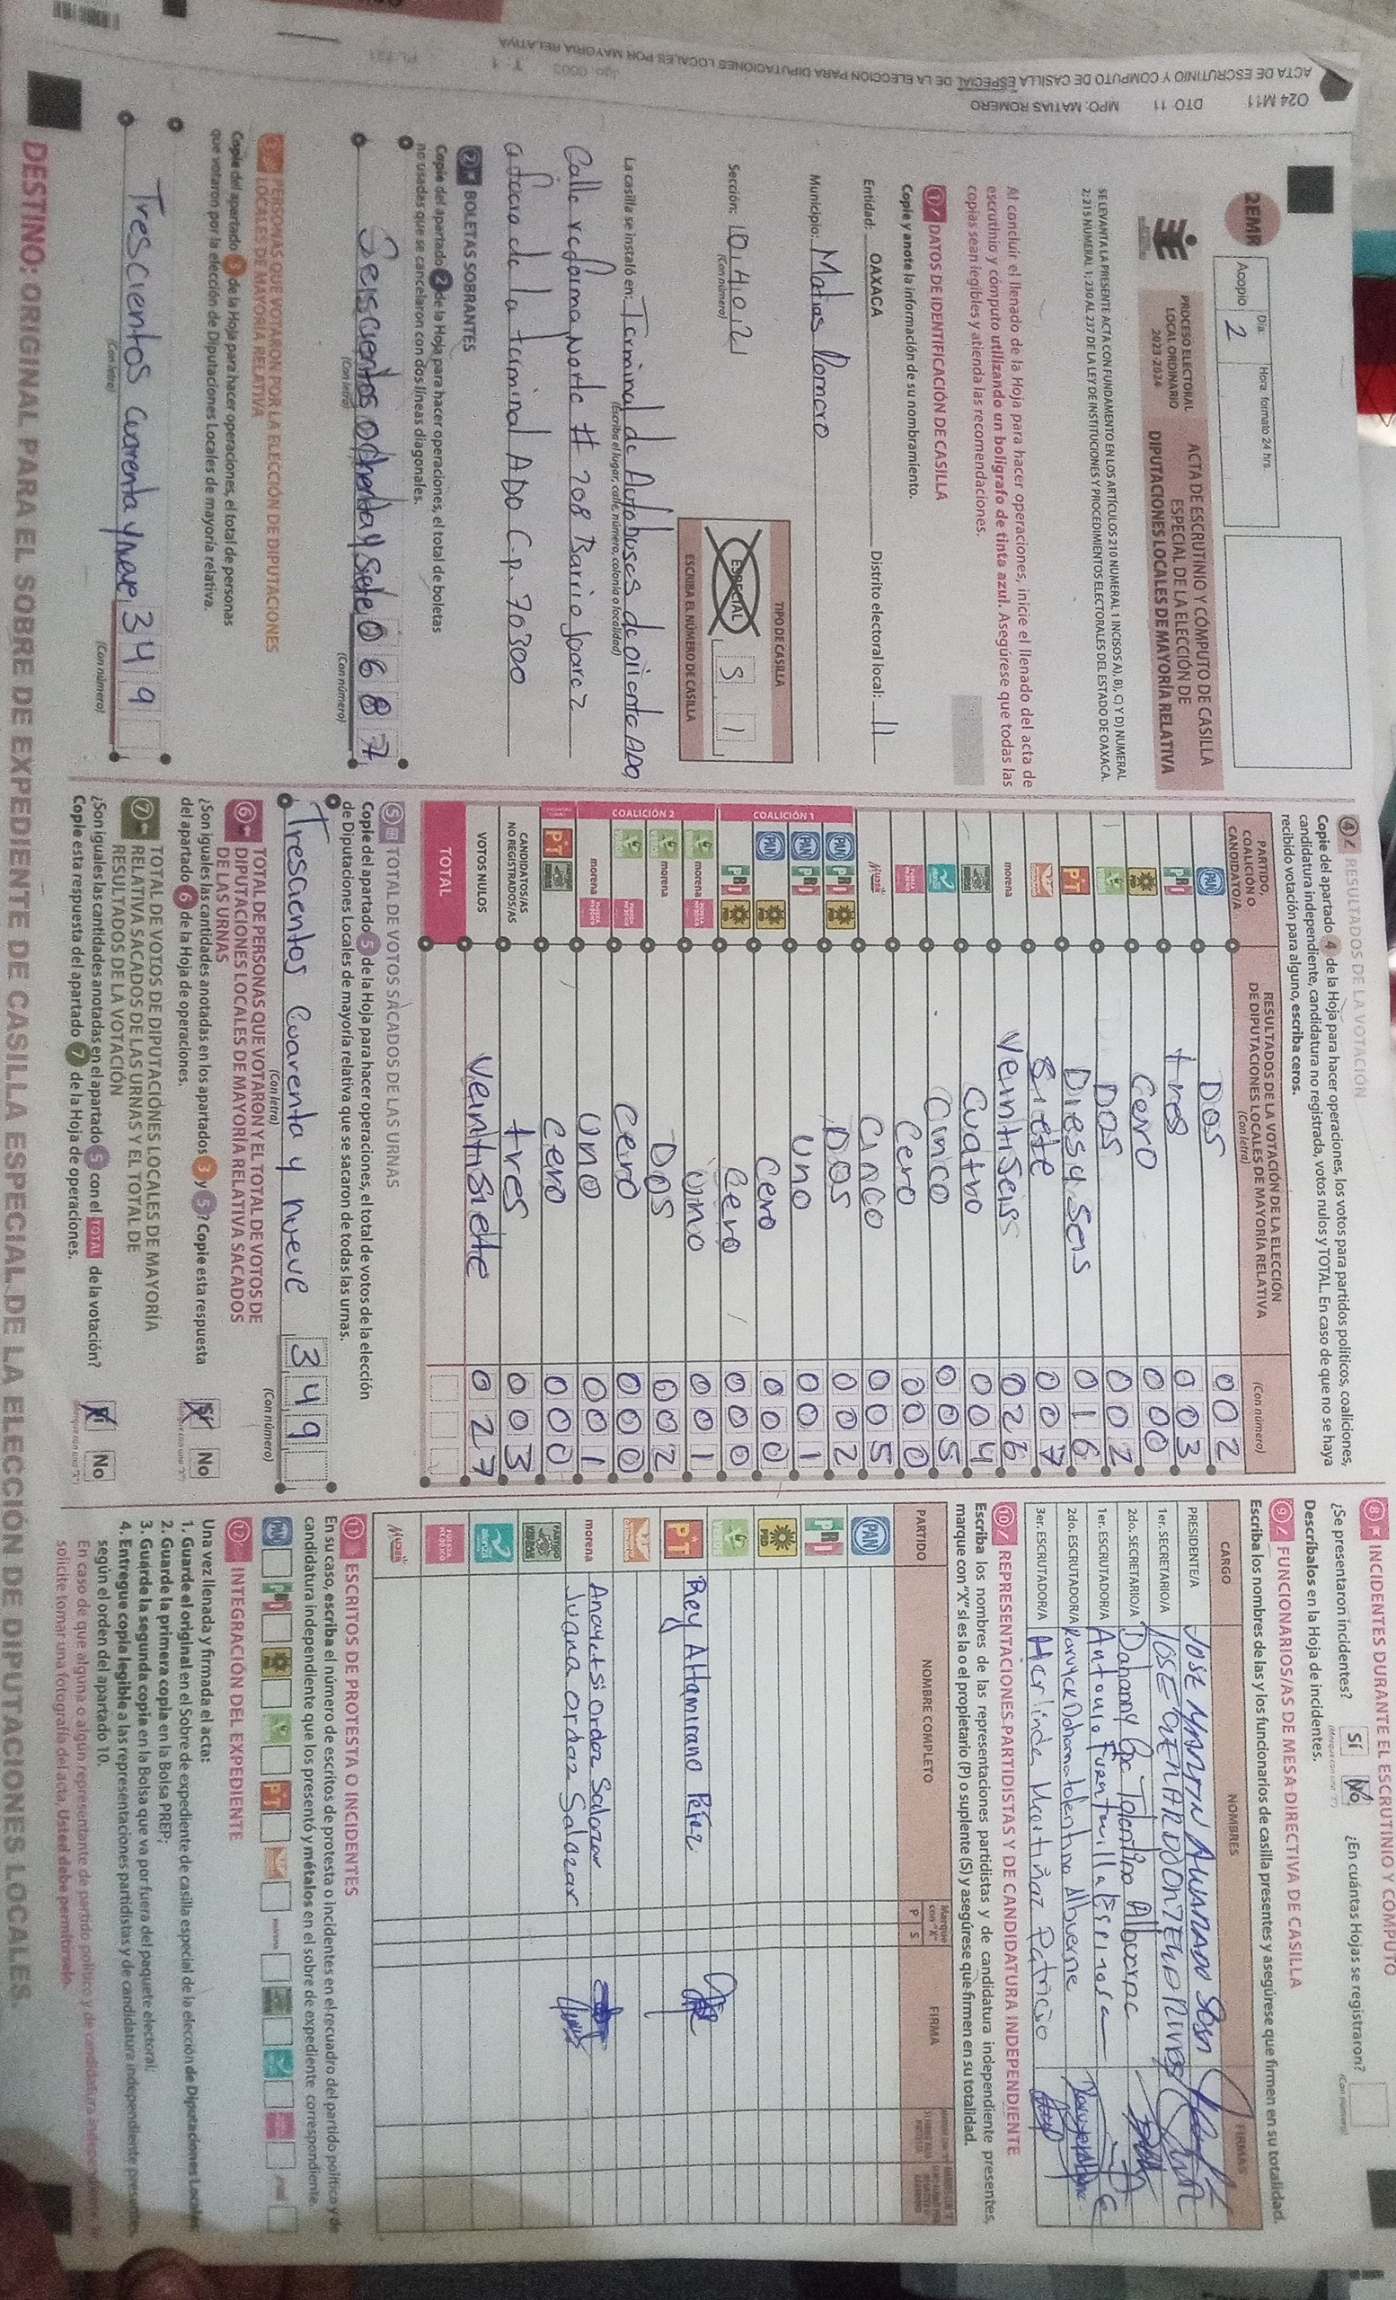 ACTA DE ESCRUTINIO Y CÓMPUTO DE CASILLA ESPECIAL DE LA ELECCIÓN PARA DIPUTACIONES LOCALES POR MAYORÍA RELATIVA
024 M11 DTO 11 MPO: MATIAS ROMERO
2EMR
Día: Hora: formato 24 hrs.
Acopio 2
PROCESO ELECTORAL
LOCAL ORDINARIO
2023-2024
ACTA DE ESCRUTINIO Y CÓMPUTO DE CASILLA
ESPECIAL DE LA ELECCIÓN DE
DIPUTACIONES LOCALES DE MAYORÍA RELATIVA
SE LEVANTA LA PRESENTE ACTA CON FUNDAMENTO EN LOS ARTÍCULOS 210 NUMERAL 1 INCISOS A), B), C) Y D) NUMERAL
2; 215 NUMERAL 1; 230 AL 237 DE LA LEY DE INSTITUCIONES Y PROCEDIMIENTOS ELECTORALES DEL ESTADO DE OAXACA.
Al concluir el llenado de la Hoja para hacer operaciones, inicie el llenado del acta de
escrutinio y cómputo utilizando un bolígrafo de tinta azul. Asegúrese que todas las
copias sean legibles y atienda las recomendaciones.
1 DATOS DE IDENTIFICACIÓN DE CASILLA
Copie y anote la información de su nombramiento.
Entidad: OAXACA Distrito electoral local: 11
Municipio: Matias Romero
Sección: 0402
(Con número)
TIPO DE CASILLA
ESPECIAL S 1
ESCRIBA EL NÚMERO DE CASILLA
La casilla se instaló en: Terminal de Autobuses de oriente ADO
(Escriba el lugar, calle, número, colonia o localidad)
Calle reforma Norte # 208 Barrio Juarez
afocra de la terminal ADO C.p. 70300
2 BOLETAS SOBRANTES
Copie del apartado 2 de la Hoja para hacer operaciones, el total de boletas
no usadas que se cancelaron con dos líneas diagonales.
Seiscientos ochenta y siete 0687
(Con letra) (Con número)
3 PERSONAS QUE VOTARON POR LA ELECCIÓN DE DIPUTACIONES
LOCALES DE MAYORÍA RELATIVA
Copie del apartado 3 de la Hoja para hacer operaciones, el total de personas
que votaron por la elección de Diputaciones Locales de mayoría relativa.
Trescientos cuarenta y nueve 349
(Con letra) (Con número)
4 RESULTADOS DE LA VOTACIÓN
Copie del apartado 4 de la Hoja para hacer operaciones, los votos para partidos políticos, coaliciones,
candidatura independiente, candidatura no registrada, votos nulos y TOTAL. En caso de que no se haya
recibido votación para alguno, escriba ceros.
PARTIDO,
COALICIÓN O
CANDIDATO/A
RESULTADOS DE LA VOTACIÓN DE LA ELECCIÓN
DE DIPUTACIONES LOCALES DE MAYORÍA RELATIVA
(Con letra)
(Con número)
PAN Dos 002
PRI tres 003
PRD Cero 000
Dos 002
PT Dies y seis 016
Siete 007
morena Veintiseiss 026
Cuatro 004
Cinco 005
Cero 000
MUJER Cinco 005
COALICIÓN 1
PAN PRI PRD Dos 002
PAN PRI uno 001
PAN PRD Cero 000
PRI PRD Cero 000
COALICIÓN 2
morena uno 001
morena Dos 002
Cero 000
morena uno 001
PT Cero 000
CANDIDATOS/AS
NO REGISTRADOS/AS tres 003
VOTOS NULOS Veintisiete 027
TOTAL
5 TOTAL DE VOTOS SACADOS DE LAS URNAS
Copie del apartado 5 de la Hoja para hacer operaciones, el total de votos de la elección
de Diputaciones Locales de mayoría relativa que se sacaron de todas las urnas.
Trescientos Cuarenta y nueve 349
(Con letra) (Con número)
6 TOTAL DE PERSONAS QUE VOTARON Y EL TOTAL DE VOTOS DE
DIPUTACIONES LOCALES DE MAYORÍA RELATIVA SACADOS
DE LAS URNAS
¿Son iguales las cantidades anotadas en los apartados 3 y 5? Copie esta respuesta
del apartado 6 de la Hoja de operaciones.
Sí No
7 TOTAL DE VOTOS DE DIPUTACIONES LOCALES DE MAYORÍA
RELATIVA SACADOS DE LAS URNAS Y EL TOTAL DE
RESULTADOS DE LA VOTACIÓN
¿Son iguales las cantidades anotadas en el apartado 5 con el TOTAL de la votación?
Copie esta respuesta del apartado 7 de la Hoja de operaciones.
Sí No
8 INCIDENTES DURANTE EL ESCRUTINIO Y CÓMPUTO
¿Se presentaron incidentes? Sí No ¿En cuántas Hojas se registraron?
Descríbalos en la Hoja de incidentes.
9 FUNCIONARIOS/AS DE MESA DIRECTIVA DE CASILLA
Escriba los nombres de las y los funcionarios de casilla presentes y asegúrese que firmen en su totalidad.
CARGO NOMBRES FIRMAS
PRESIDENTE/A JOSE MARTIN ALVARADO SOSA
1er. SECRETARIO/A
2do. SECRETARIO/A
1er. ESCRUTADOR/A Antonio
2do. ESCRUTADOR/A
3er. ESCRUTADOR/A Herlinda Martiñez Patricio
10 REPRESENTACIONES PARTIDISTAS Y DE CANDIDATURA INDEPENDIENTE
Escriba los nombres de las representaciones partidistas y de candidatura independiente presentes,
marque con "X" si es la o el propietario (P) o suplente (S) y asegúrese que firmen en su totalidad.
PARTIDO NOMBRE COMPLETO Marque con "X" P S FIRMA
PAN
PRI
PRD
PT Rey Altamirano Pérez
morena Anayetsi Ordaz Salazar
Juana Ordaz Salazar
MUJER
11 ESCRITOS DE PROTESTA O INCIDENTES
En su caso, escriba el número de escritos de protesta o incidentes en el recuadro del partido político y de
candidatura independiente que los presentó y métalos en el sobre de expediente correspondiente.
12 INTEGRACIÓN DEL EXPEDIENTE
Una vez llenada y firmada el acta:
1. Guarde el original en el Sobre de expediente de casilla especial de la elección de Diputaciones Locales
2. Guarde la primera copia en la Bolsa PREP;
3. Guarde la segunda copia en la Bolsa que va por fuera del paquete electoral;
4. Entregue copia legible a las representaciones partidistas y de candidatura independiente presentes,
según el orden del apartado 10.
En caso de que alguna o algún representante de partido político y de candidatura independiente
solicite tomar una fotografía del acta, Usted debe permitírselo.
DESTINO: ORIGINAL PARA EL SOBRE DE EXPEDIENTE DE CASILLA ESPECIAL DE LA ELECCIÓN DE DIPUTACIONES LOCALES.